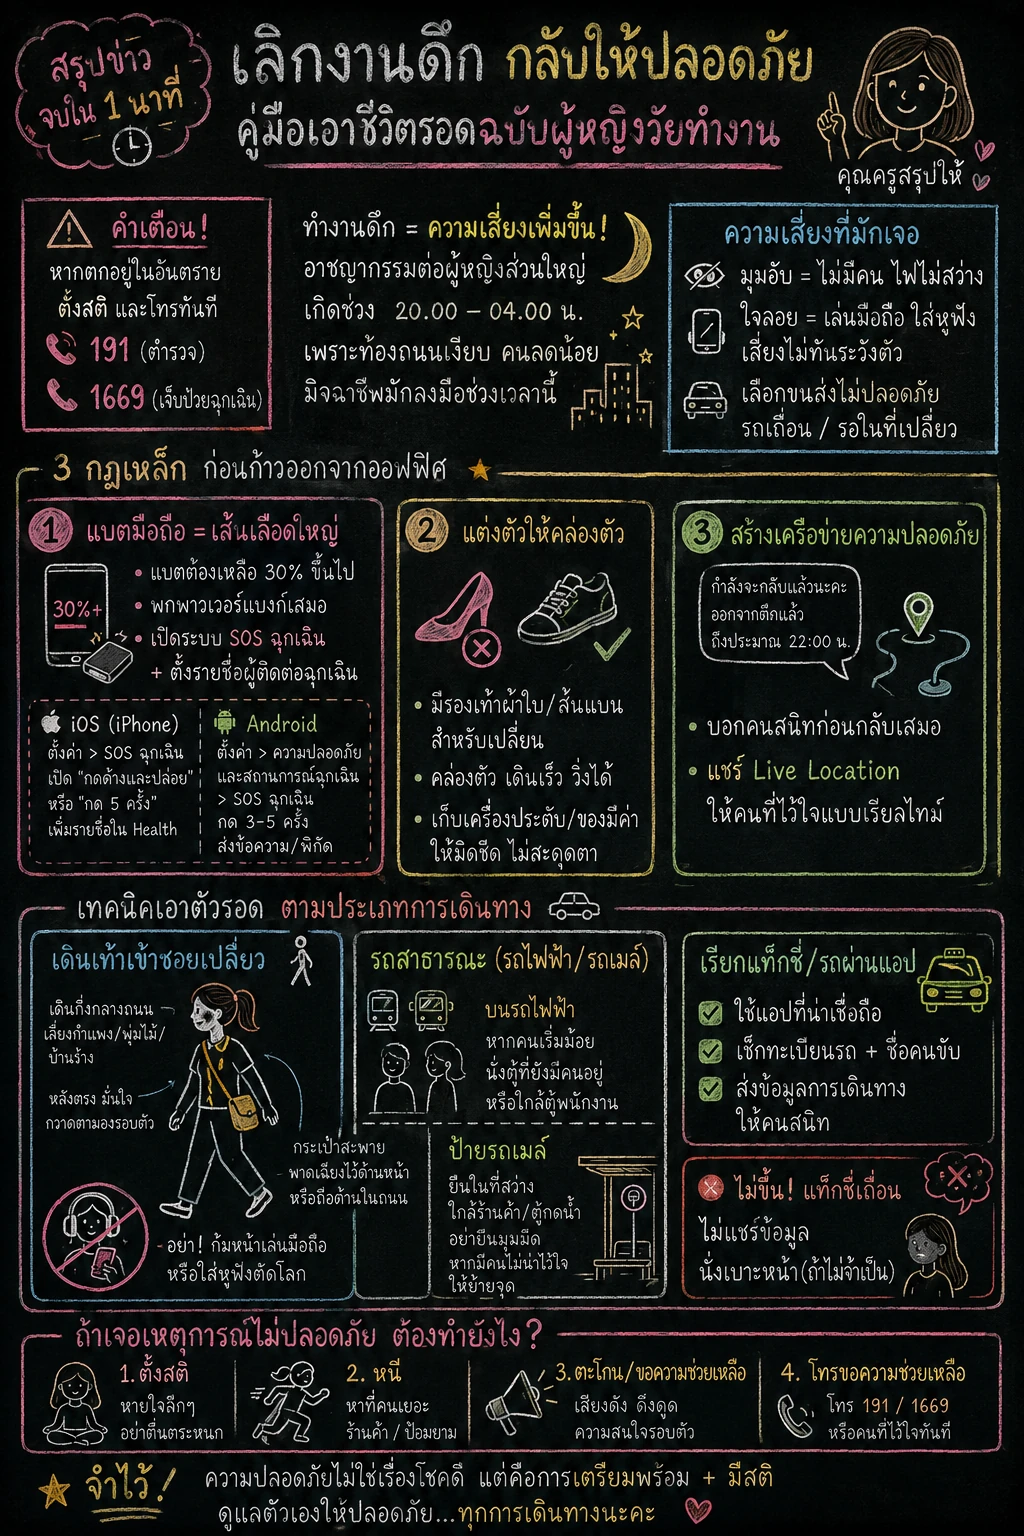 สรุปข่าว
จบใน 1 นาที
เลิกงานดึก กลับให้ปลอดภัย
คู่มือเอาชีวิตรอดฉบับผู้หญิงวัยทำงาน
คุณครูสรุปให้
คำเตือน!
หากตกอยู่ในอันตราย
ตั้งสติ และโทรทันที
191 (ตำรวจ)
1669 (เจ็บป่วยฉุกเฉิน)
ทำงานดึก = ความเสี่ยงเพิ่มขึ้น!
อาชญากรรมต่อผู้หญิงส่วนใหญ่
เกิดช่วง 20.00 – 04.00 น.
เพราะท้องถนนเงียบ คนลดน้อย
มิจฉาชีพมักลงมือช่วงเวลานี้
ความเสี่ยงที่มักเจอ
มุมอับ = ไม่มีคน ไฟไม่สว่าง
ใจลอย = เล่นมือถือ ใส่หูฟัง
เสี่ยงไม่ทันระวังตัว
เลือกขนส่งไม่ปลอดภัย
รถเถื่อน / รอในที่เปลี่ยว
3 กฎเหล็ก ก่อนก้าวออกจากออฟฟิศ
1 แบตมือถือ = เส้นเลือดใหญ่
30%+
• แบตต้องเหลือ 30% ขึ้นไป
• พกพาวเวอร์แบงก์เสมอ
• เปิดระบบ SOS ฉุกเฉิน
+ ตั้งรายชื่อผู้ติดต่อฉุกเฉิน
iOS (iPhone)
ตั้งค่า > SOS ฉุกเฉิน
เปิด "กดค้างและปล่อย"
หรือ "กด 5 ครั้ง"
เพิ่มรายชื่อใน Health
Android
ตั้งค่า > ความปลอดภัย
และสถานการณ์ฉุกเฉิน
> SOS ฉุกเฉิน
กด 3-5 ครั้ง
ส่งข้อความ/พิกัด
2 แต่งตัวให้คล่องตัว
• มีรองเท้าผ้าใบ/ส้นแบน
สำหรับเปลี่ยน
• คล่องตัว เดินเร็ว วิ่งได้
• เก็บเครื่องประดับ/ของมีค่า
ให้มิดชิด ไม่สะดุดตา
3 สร้างเครือข่ายความปลอดภัย
กำลังจะกลับแล้วนะคะ
ออกจากตึกแล้ว
ถึงประมาณ 22:00 น.
• บอกคนสนิทก่อนกลับเสมอ
• แชร์ Live Location
ให้คนที่ไว้ใจแบบเรียลไทม์
เทคนิคเอาตัวรอด ตามประเภทการเดินทาง
เดินเท้าเข้าซอยเปลี่ยว
เดินกึ่งกลางถนน
เลี่ยงกำแพง/พุ่มไม้/
บ้านร้าง
หลังตรง มั่นใจ
กวาดตามองรอบตัว
กระเป๋าสะพาย
พาดเฉียงไว้ด้านหน้า
หรือถือด้านในถนน
อย่า! ก้มหน้าเล่นมือถือ
หรือใส่หูฟังตัดโลก
รถสาธารณะ (รถไฟฟ้า/รถเมล์)
บนรถไฟฟ้า
หากคนเริ่มน้อย
นั่งตู้ที่ยังมีคนอยู่
หรือใกล้ตู้พนักงาน
ป้ายรถเมล์
ยืนในที่สว่าง
ใกล้ร้านค้า/ตู้กดน้ำ
อย่ายืนมุมมืด
หากมีคนไม่น่าไว้ใจ
ให้ย้ายจุด
เรียกแท็กซี่/รถผ่านแอป
ใช้แอปที่น่าเชื่อถือ
เช็กทะเบียนรถ + ชื่อคนขับ
ส่งข้อมูลการเดินทาง
ให้คนสนิท
ไม่ขึ้น! แท็กซี่เถื่อน
ไม่แชร์ข้อมูล
นั่งเบาะหน้า(ถ้าไม่จำเป็น)
ถ้าเจอเหตุการณ์ไม่ปลอดภัย ต้องทำยังไง?
1. ตั้งสติ
หายใจลึกๆ
อย่าตื่นตระหนก
2. หนี
หาที่คนเยอะ
ร้านค้า / ป้อมยาม
3. ตะโกน/ขอความช่วยเหลือ
เสียงดัง ดึงดูด
ความสนใจรอบตัว
4. โทรขอความช่วยเหลือ
โทร 191 / 1669
หรือคนที่ไว้ใจทันที
จำไว้!
ความปลอดภัยไม่ใช่เรื่องโชคดี แต่คือการเตรียมพร้อม + มีสติ
ดูแลตัวเองให้ปลอดภัย...ทุกการเดินทางนะคะ